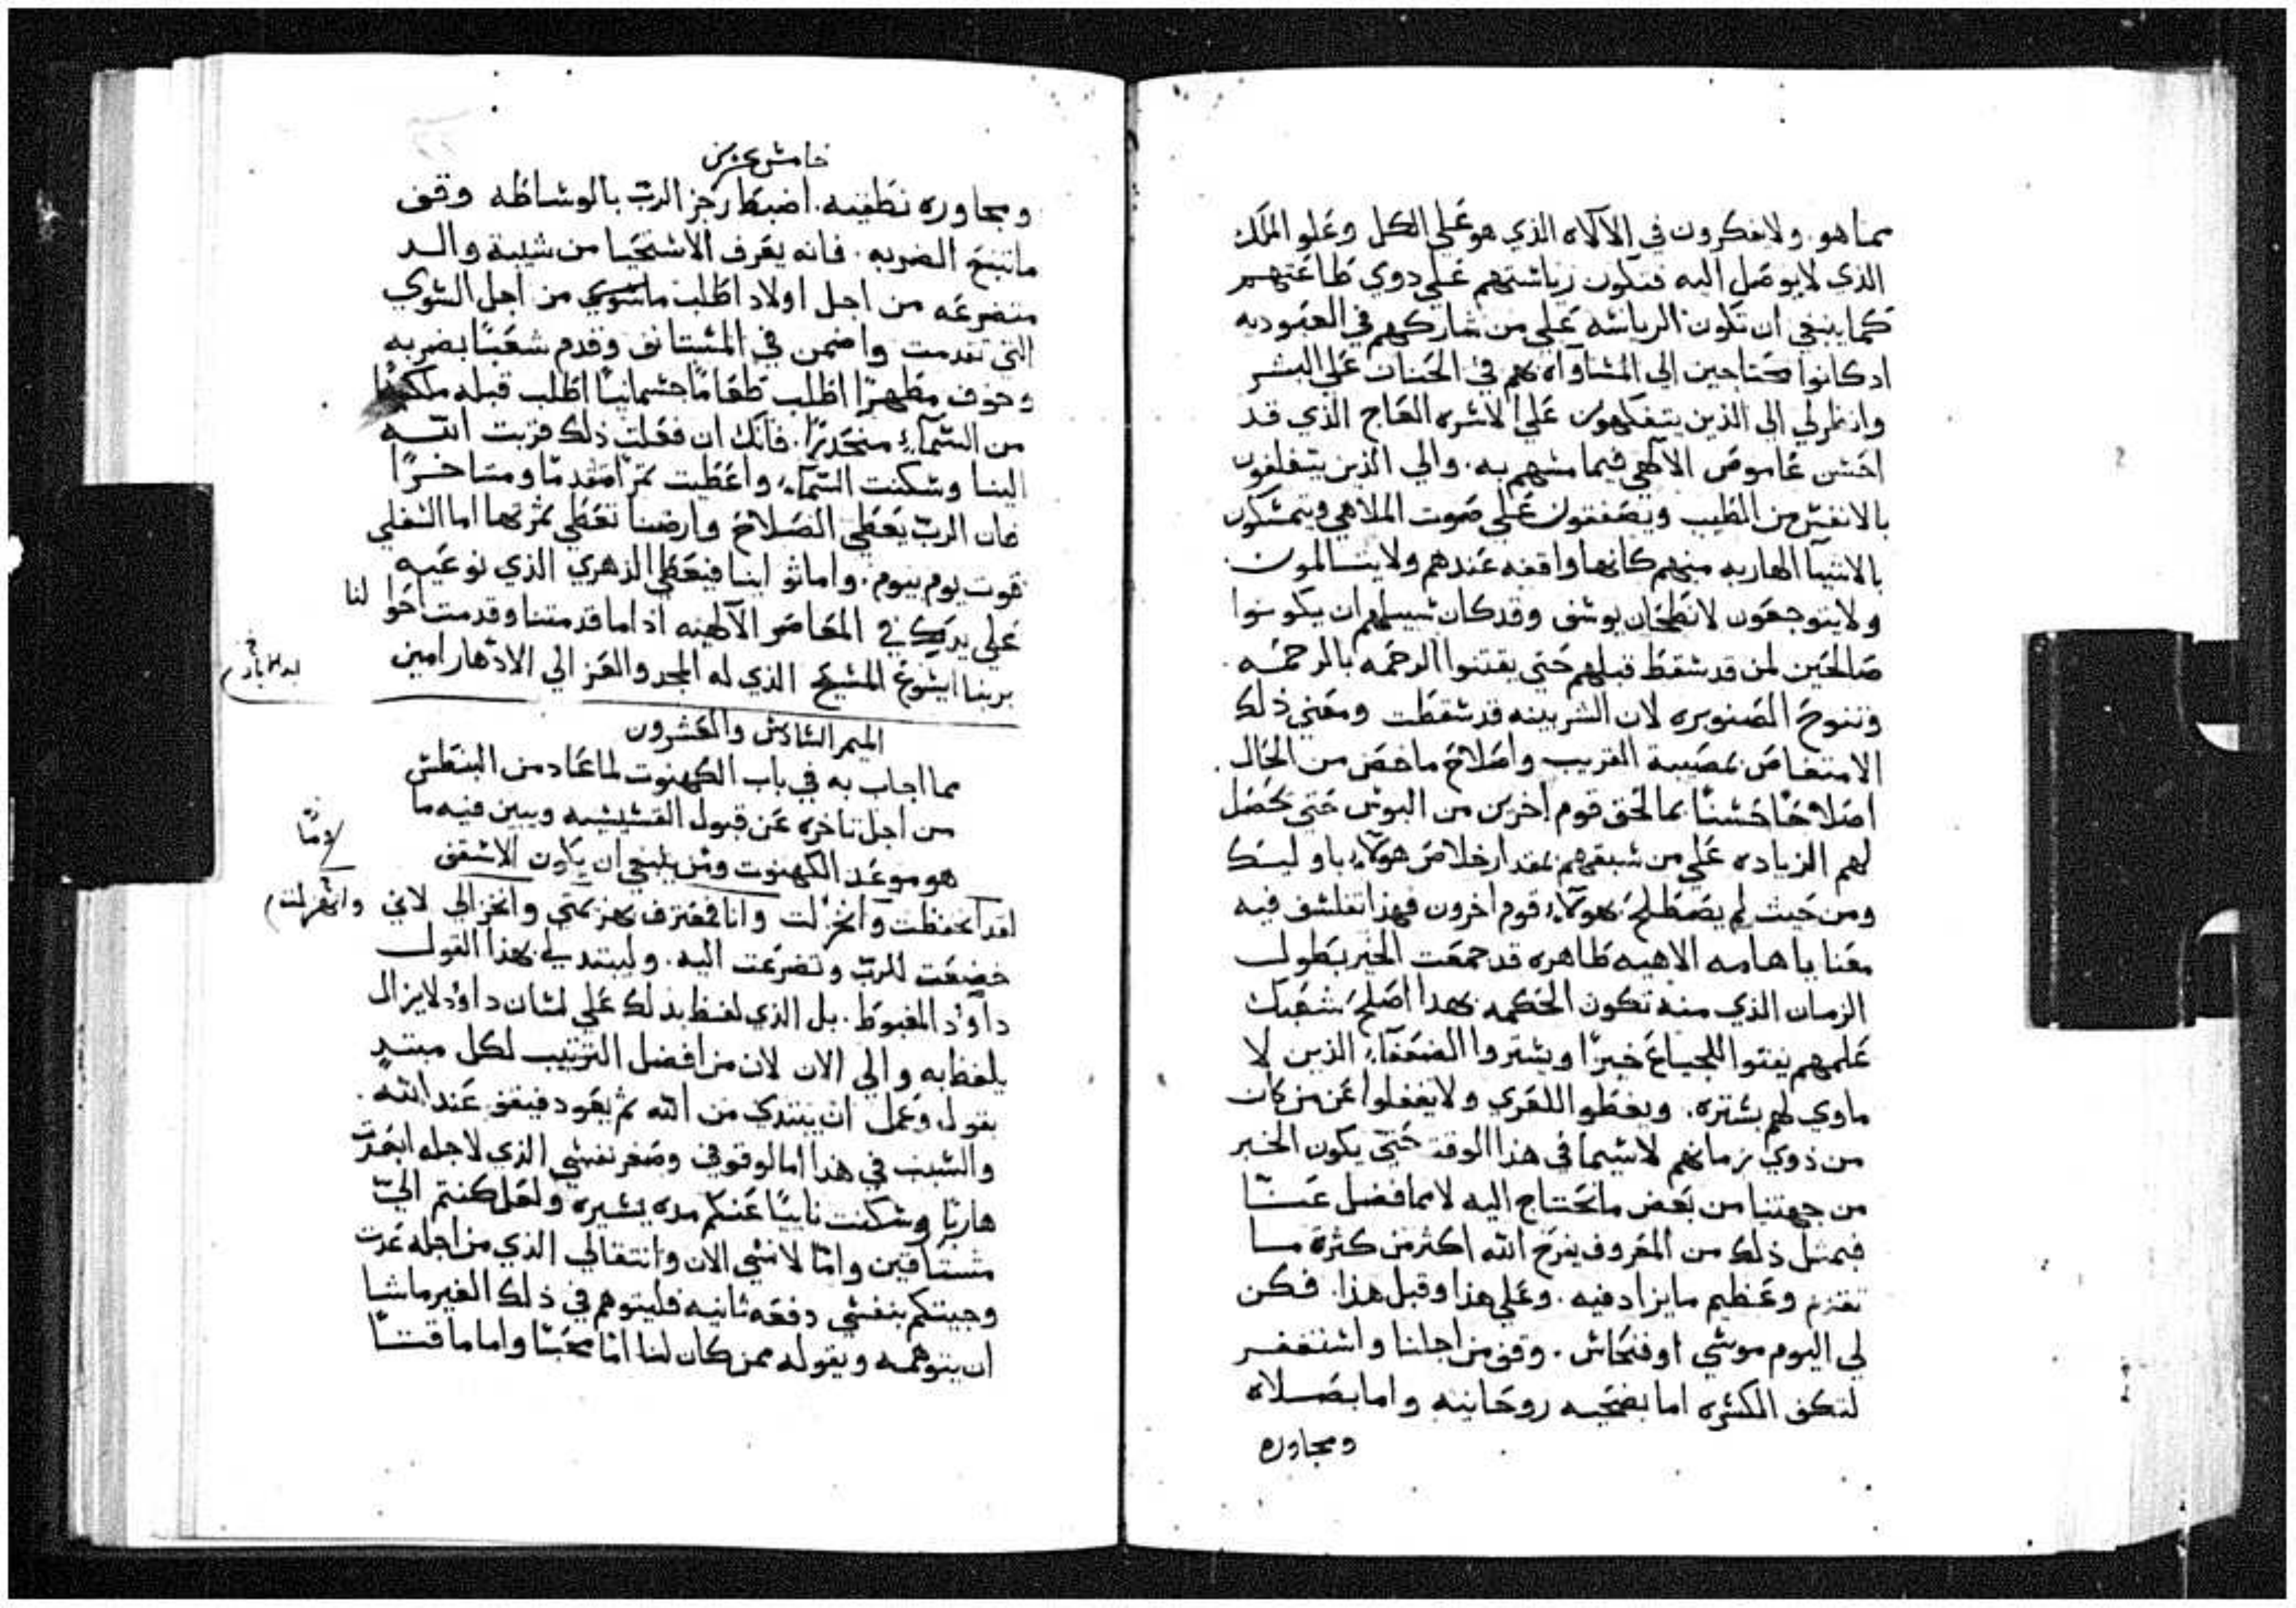 مما هو. ولا فكرون في الآلاه الذي هو علي الكل وعلو الملك
الذي لا يوصل اليه فتكون رياشتهم علي دوي طاعتهم
كما ينبغي ان تكون الرياشه علي من شاركهم في العبوديه
اد كانوا محتاجين الي المشاواه بهم في الحنان علي البشر
وانظر لي الي الذين يتفكهون علي الاشره العاج الذي قد
احشن عاموص الالهي فيما مشهم به. والي الذين يتغلفون
بالانفس من الطيب ويصفقون علي صوت الملاهي ويتمشكون
بالاشيا الهاربه منهم كانها واقفه عندهم ولا يتالمون.
ولا يتوجعون لانطحان يوشف وقد كان شبيلهم ان يكونوا
صالحين لمن قد شقط قبلهم حتي يقتنوا الرحمه بالرحمه.
وتنوح الصنوبره لان الشربينه قد شقطت ومعني ذلك
الامتعاض بمصيبة القريب واصلاح ما خص من الحال.
اصلاحًا حشنًا بما لحق قوم اخرين من البوش حتي يحصل
لهم الزياده علي من شبقهم بمقدار خلاص هولاء باوليك
ومن حيث لم يصطلح بهولاء قوم اخرون فهذا تفلشف فيه
معنا يا هامه الاهيه طاهره قد جمعت الخير بطول
الزمان الذي منه تكون الحكمه بهدا اصلح شعبك
علمهم يفتوا للجياع خبزًا ويشتروا الضعفاء الذين لا
ماوي لهم بشتره. ويغطوا للعري ولا يغفلوا عن من كان
من ذوي زمانهم لا شيما في هذا الوقت حتي يكون الخير
من جهتنا من بعض ما نحتاج اليه لا مما فضل عنّا
فبمثل ذلك من المعروف يفرح الله اكثر من كثرة ما
تقدم وعظيم ما يزاد فيه. وعلي هذا وقبل هذا. فكن
لي اليوم موشي او فنحاش. وقف من اجلنا واشتغفر
لتكف الكشره اما بضحيه روحانيه واما بصلاه
ومجاوره
خامش عشرين
ومجاوره نطقيه. اضبط رجز الرب بالوشاطه وقف
ما تتبع الضربه. فانه يعرف الاشتحيا من شيبة والد
متضرعه من اجل اولاد اطلب ما شوي من اجل الشوي
التي تقدمت واضمن في المشتانف وقدم شعبًا بضربه
وخوف مطهرًا اطلب طعامًا جشمانيًا اطلب قبله ملكيًا
من الشماء منحدرًا. فانك ان فعلت ذلك قربت الله
الينا وشكنت الشماء واعطيت ثمرًا متقدمًا ومتاخرًا
فان الرب يعطي الصلاح وارضنا تعطي ثمرتها اما الشفلي
قوت يوم بيوم. واما ثو ابنا فيعطي الزهري الذي نوعيه
علي يديك في المعاصر الالهيه اذ اما قدمتنا وقدمت احوا لنا
بربنا ايشوع المشيح الذي له المجد والعز الي الادهار امين
الميمر الشادش والعشرون
مما اجاب به في باب الكهنوت لما عاد من البنطش
من اجل تاخره عن قبول القشيشيه ويبين فيه ما
هو موعد الكهنوت ومن ينبغي ان يكون الاشقف
لقد انحفظت وانخزلت وانا فمعترف بهزيمتي وانخزالي لاني
خضعت للرب وتضرعت اليه. وليبتدي لي بهذا القول
داوود المغبوط. بل الذي لفظ بذلك علي لشان داوود لا يزال
يلفظ به والي الان لان من افضل الترتيب لكل مبتدٍ
بقول وعمل ان يبتدي من الله ثم يعود فيقف عند الله.
والشبب في هذا اما لوقوفي وصغر نفشي الذي لاجله ابعدت
هاربًا وشكنت نايًا عنكم مده يشيره ولعل كنتم اليّ
مشتاقين وامّا لانشي الان وانتقالي الذي من اجله عدت
وجيتكم بنفشي دفعه ثانيه فليتوهم في ذلك الغير ما شا
ان يتوهمه ويقوله ممن كان لنا امّا محبًا واما ماقتًا